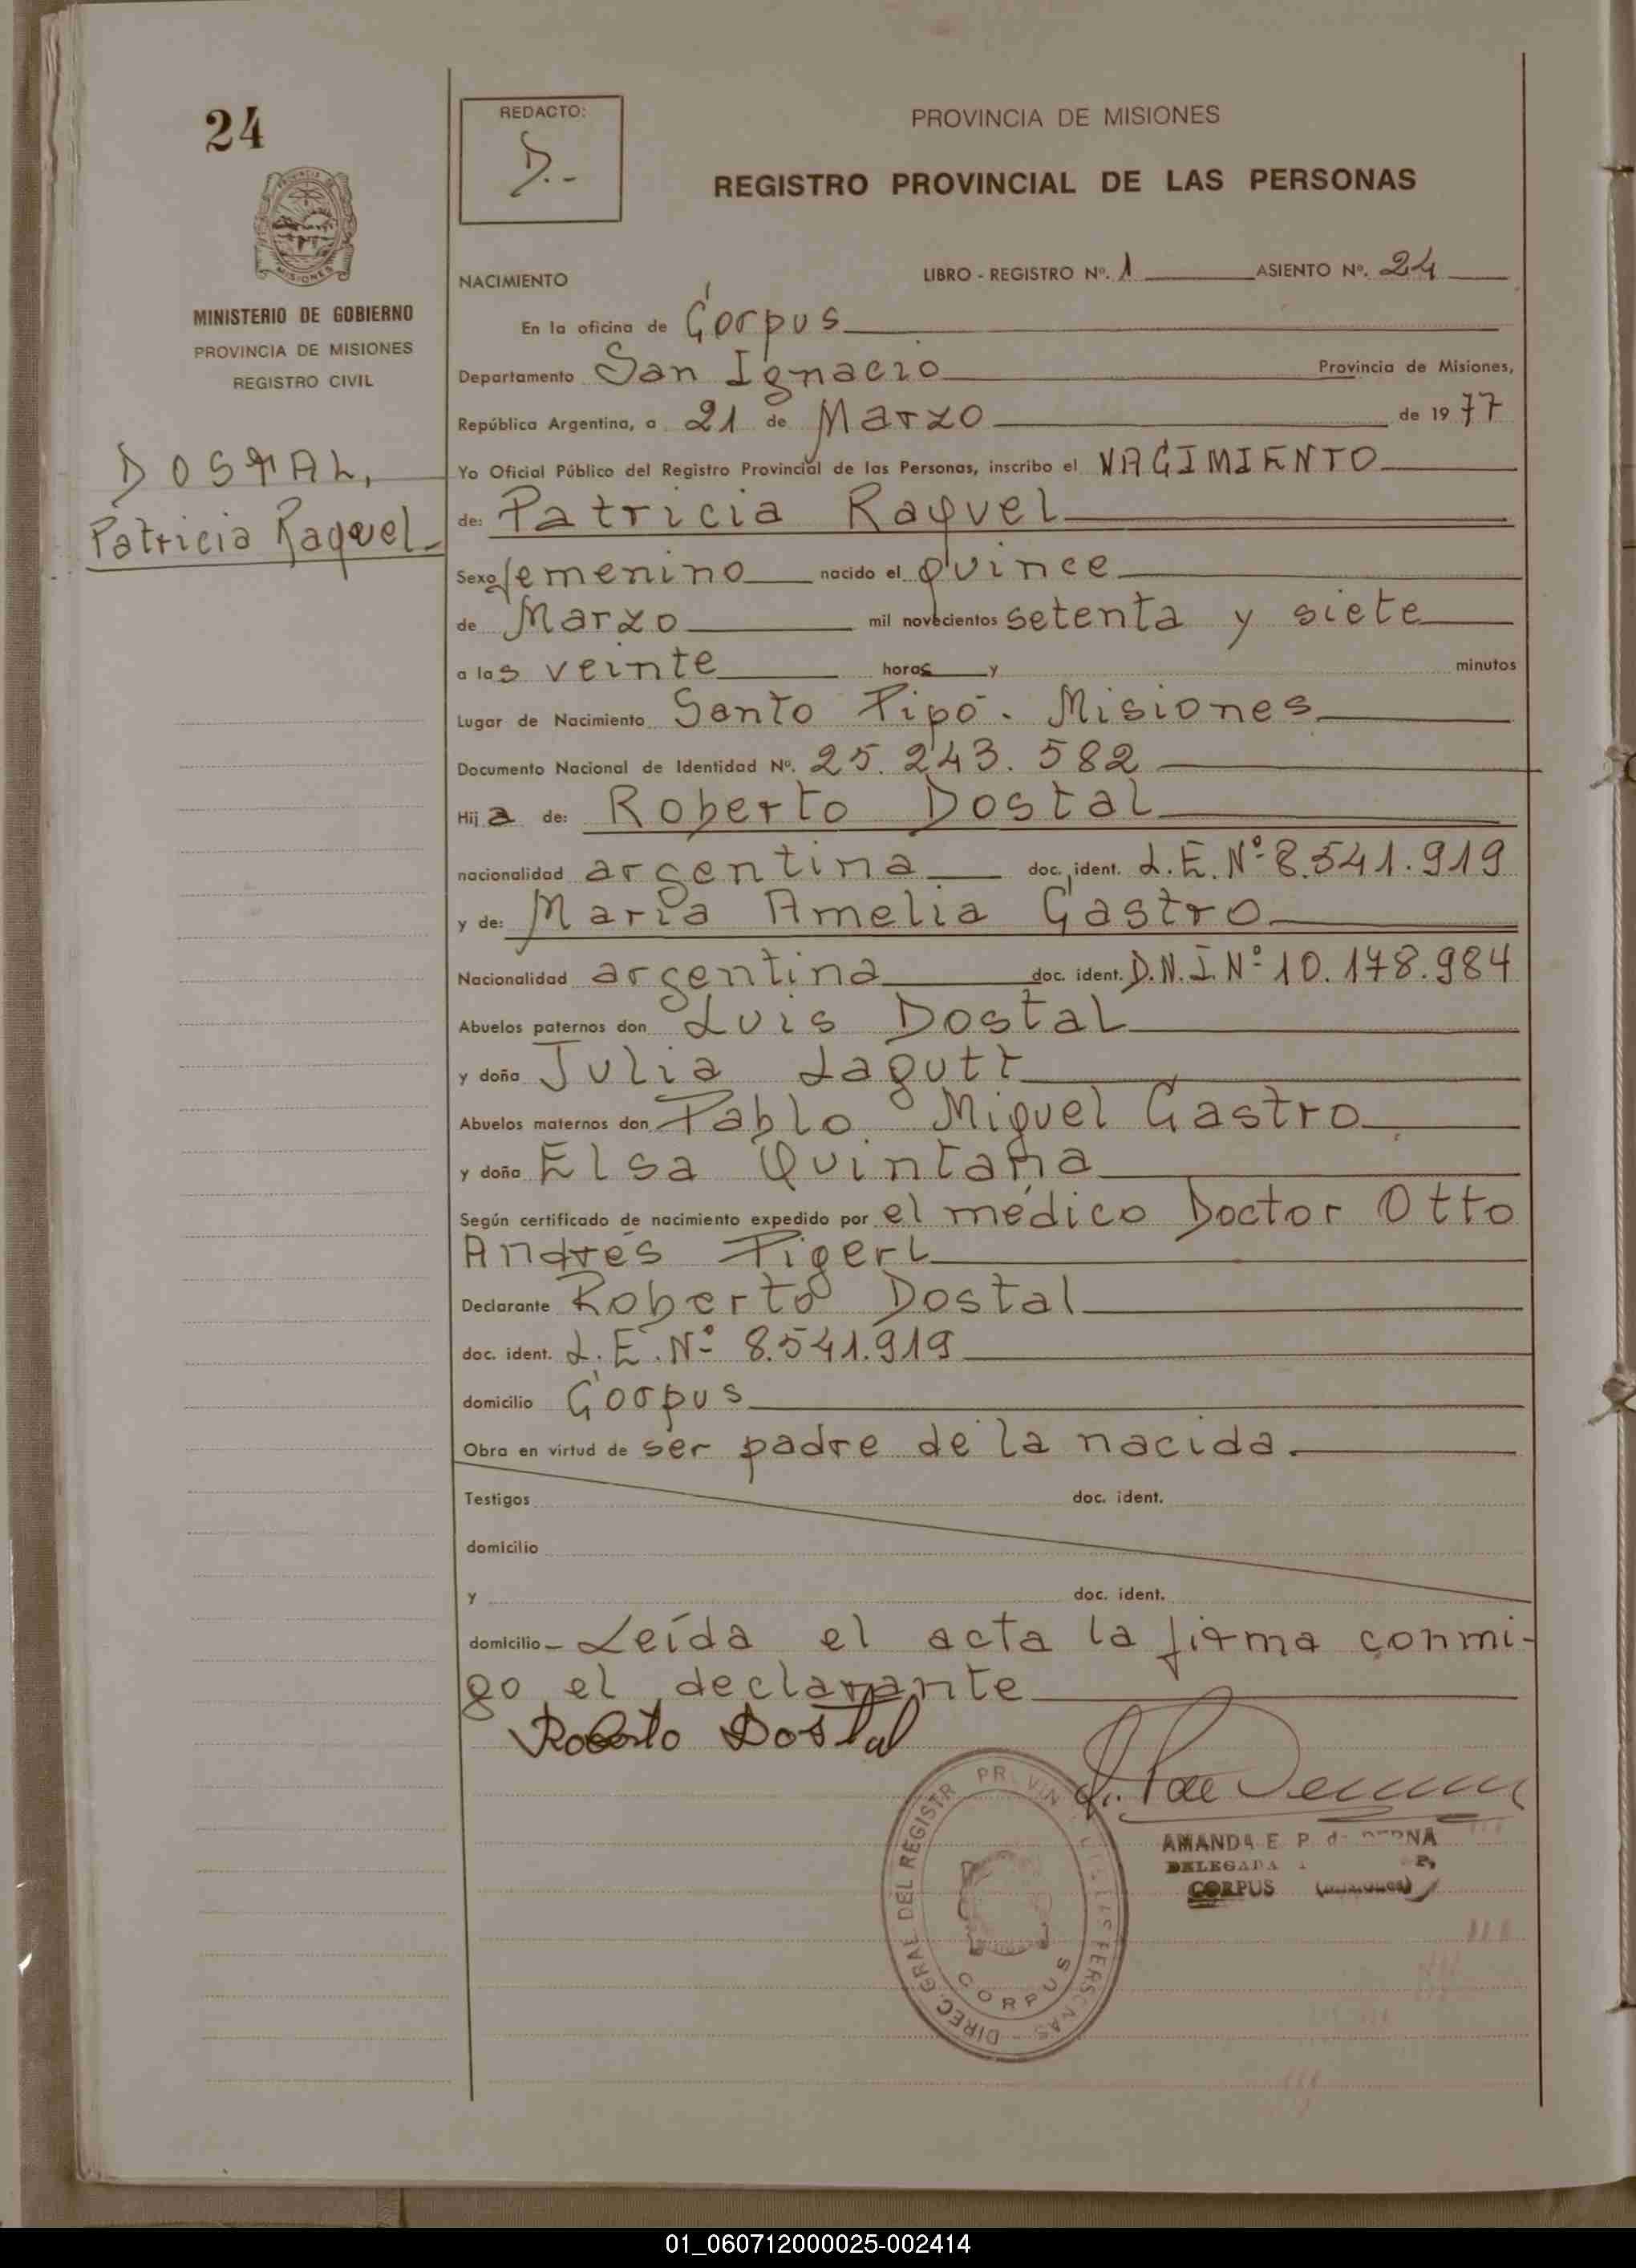 24
REDACTO:
D.-
PROVINCIA DE MISIONES
REGISTRO PROVINCIAL DE LAS PERSONAS
MISIONES
MINISTERIO DE GOBIERNO
PROVINCIA DE MISIONES
REGISTRO CIVIL
DOSTAL,
Patricia Raquel-
NACIMIENTO
LIBRO - REGISTRO Nº. 1 ASIENTO Nº. 24
En la oficina de Corpus
Departamento San Ignacio Provincia de Misiones,
República Argentina, a 21 de Marzo de 1977
Yo Oficial Público del Registro Provincial de las Personas, inscribo el NACIMIENTO
de: Patricia Raquel
Sexo femenino nacido el quince
de Marzo mil novecientos setenta y siete
a las veinte horas y minutos
Lugar de Nacimiento Santo Pipó. Misiones
Documento Nacional de Identidad Nº. 25.243.582
Hija de: Roberto Dostal
nacionalidad argentina doc. ident. L.E.Nº 8.541.919
y de: María Amelia Castro
Nacionalidad argentina doc. ident. D.N.I.Nº 10.178.984
Abuelos paternos don Luis Dostal
y doña Julia Lagutt
Abuelos maternos don Pablo Miguel Castro
y doña Elsa Quintana
Según certificado de nacimiento expedido por el médico Doctor Otto
Andrés Pigerl
Declarante Roberto Dostal
doc. ident. L.E.Nº 8.541.919
domicilio Corpus
Obra en virtud de ser padre de la nacida.
Testigos doc. ident.
domicilio
y doc. ident.
domicilio - Leída el acta la firma conmi-
go el declarante
Roberto Dostal
DIREC. GRAL DEL REGISTR PROVIN LAS PERSONAS
CORPUS
AMANDA E. P. de
DELEGADA
CORPUS (MISIONES)
01_060712000025-002414